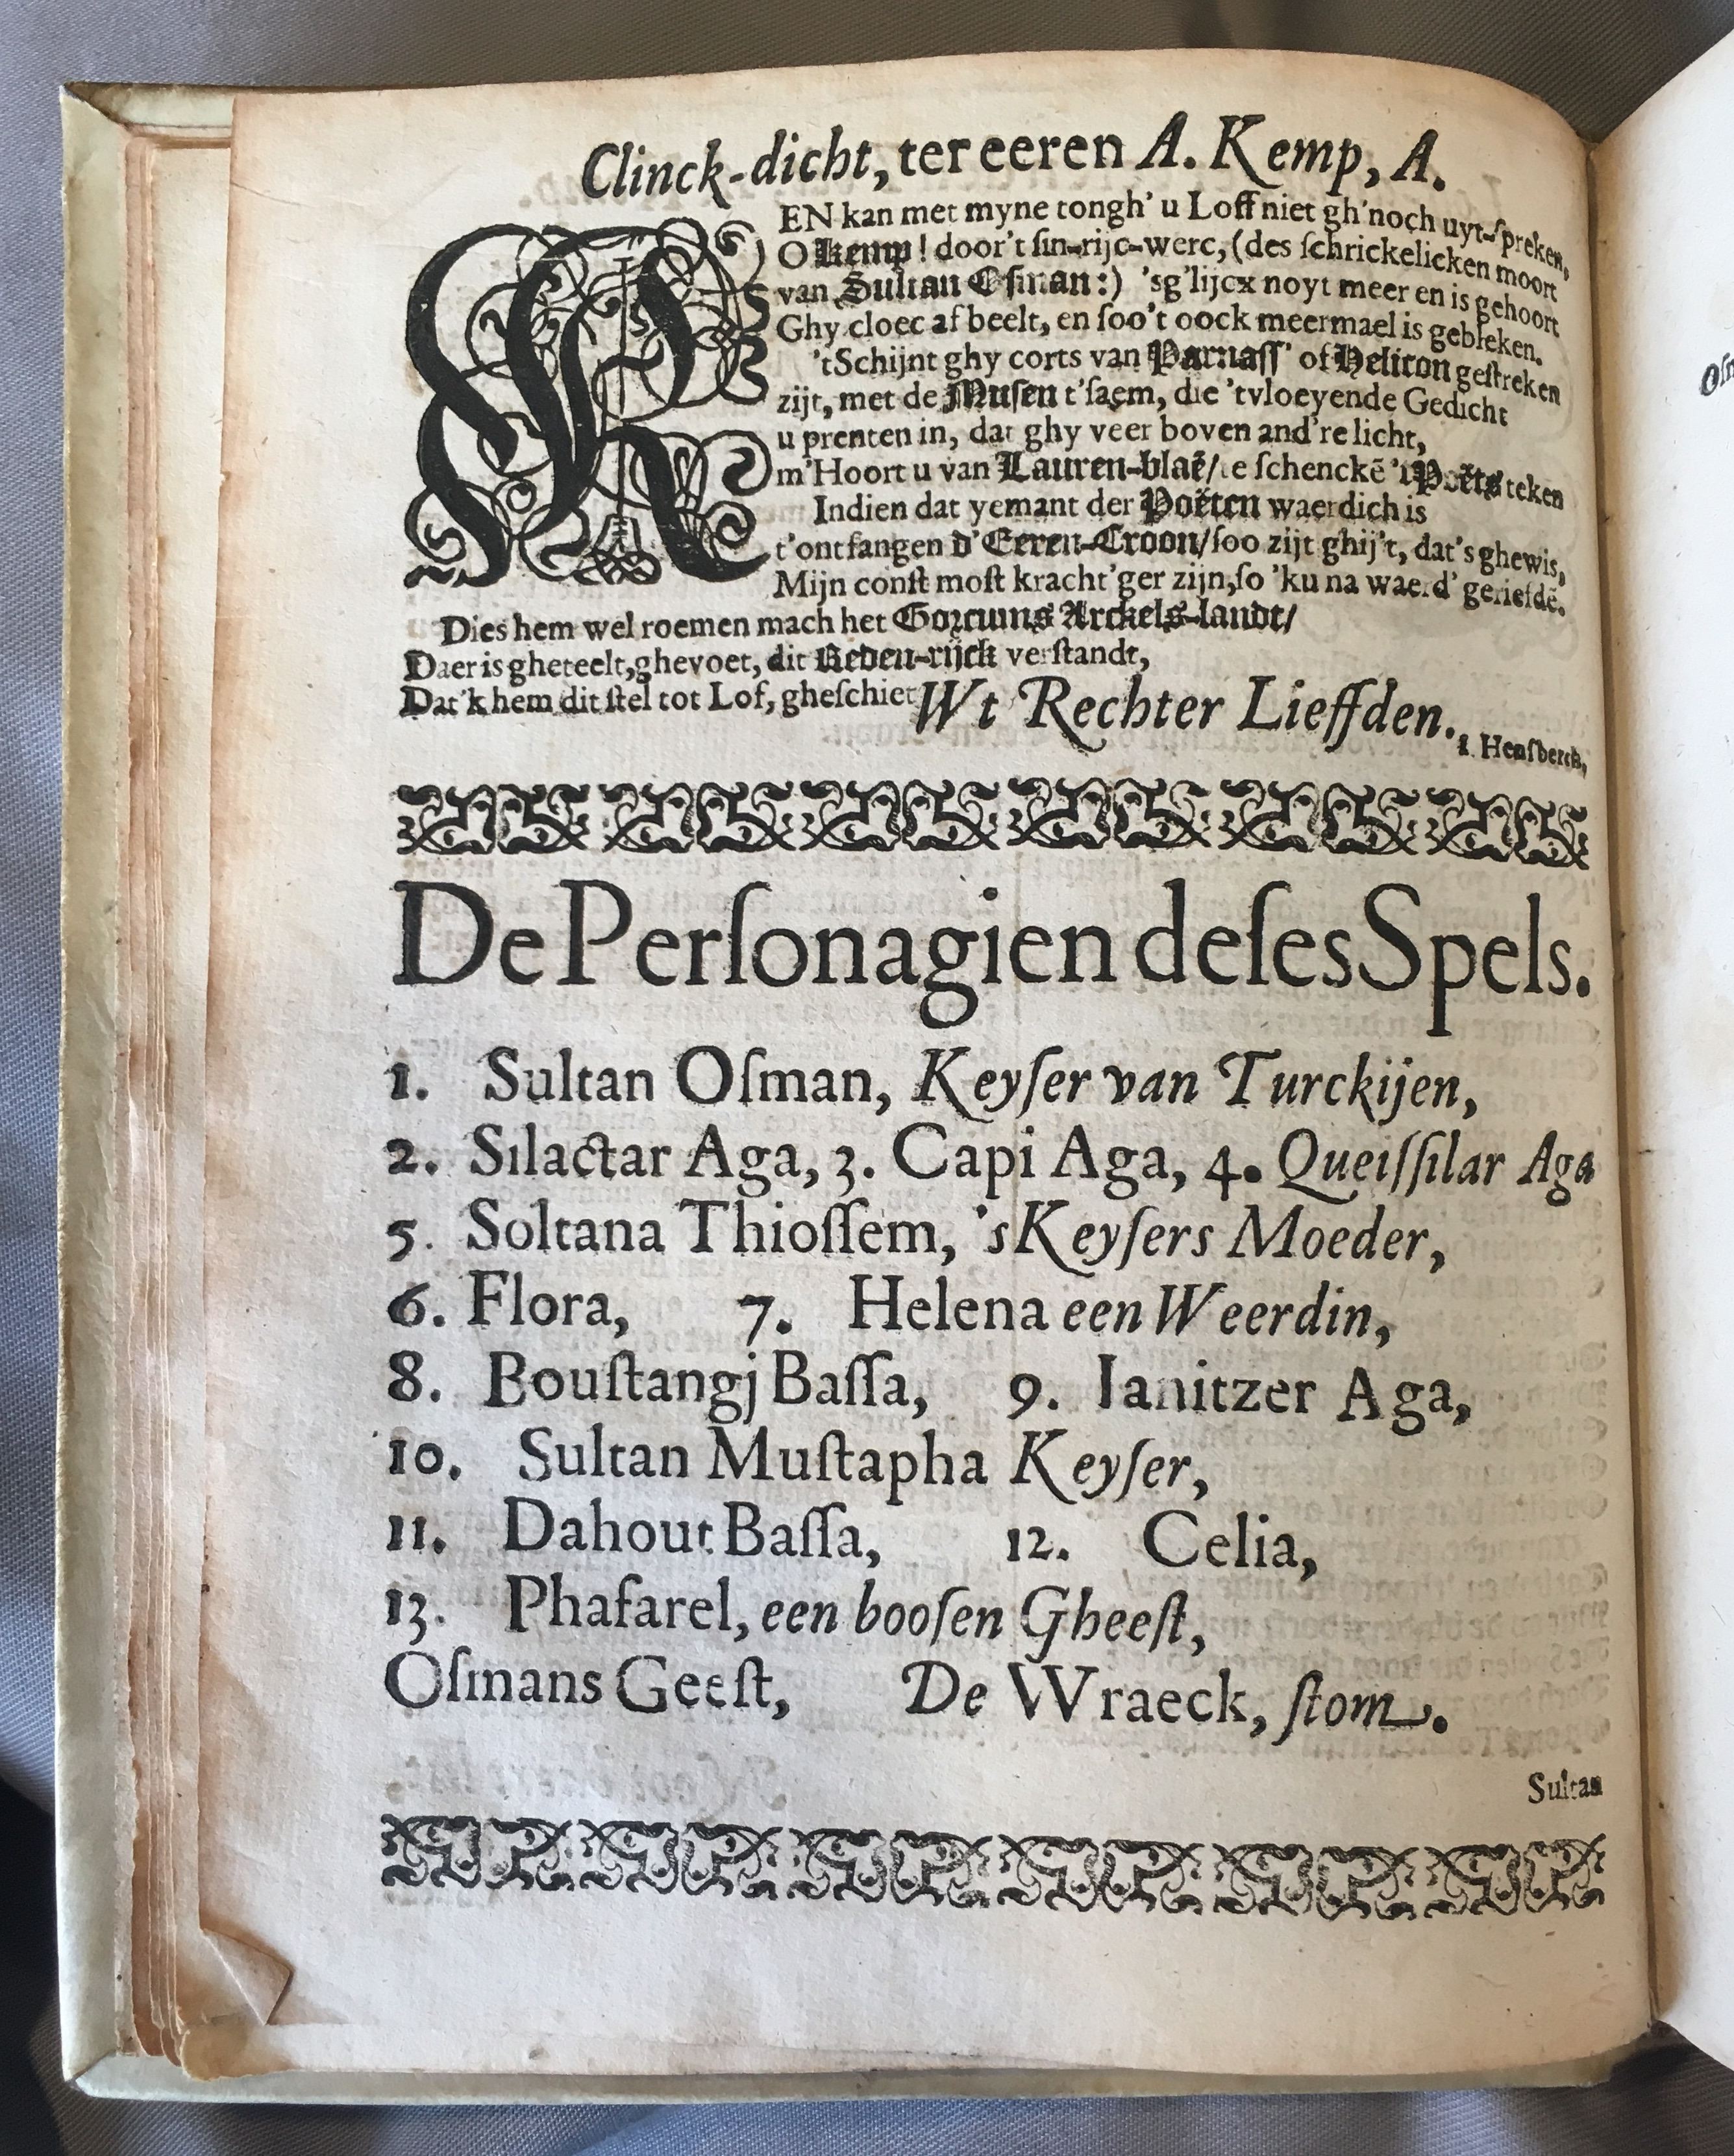 Clinck-dicht, ter eeren A. Kemp, A.
KEN kan met myne tongh' u Loff niet gh'noch uyt-ſpreken,
O Kemp! door't ſin-rijc-werc, (des ſchrickelicken moort
van Sultan Oſman:) 'sg'lijcx noyt meer en is gehoort
Ghy cloec af beelt, en ſoo't oock meermael is gebleken.
'tSchijnt ghy corts van Parnaſſ' of Helicon geſtreken
zijt, met de Muſen t'ſaem, die 'tvloeyende Gedicht
u prenten in, dat ghy veer boven and're licht,
m'Hoort u van Lauren-blaẽ/te ſchenckẽ 't Poëts teken
Indien dat yemant der Poëten waerdich is
t'ontfangen d'Eeren-Croon/ſoo zijt ghij't, dat's ghewis,
Mijn conſt moſt kracht'ger zijn,ſo 'ku na waerd' geriefdẽ.
Dies hem wel roemen mach het Gorcums Arckels-landt/
Daer is gheteelt,ghevoet, dit Reden-rijck verſtandt,
Dat'k hem dit ſtel tot Lof, gheſchiet Wt Rechter Lieffden.
I. Henſberch,
De Perſonagien deſes Spels.
1. Sultan Oſman, Keyſer van Turckijen,
2. Silactar Aga, 3. Capi Aga, 4. Queiſſilar Aga
5. Soltana Thioſſem, 'sKeyſers Moeder,
6. Flora, 7. Helena een Weerdin,
8. Bouſtangj Baſſa, 9. Ianitzer Aga,
10. Sultan Muſtapha Keyſer,
11. Dahout Baſſa, 12. Celia,
13. Phafarel, een booſen Gheeſt,
Oſmans Geeſt, De Wraeck, ſtom.
Sultan